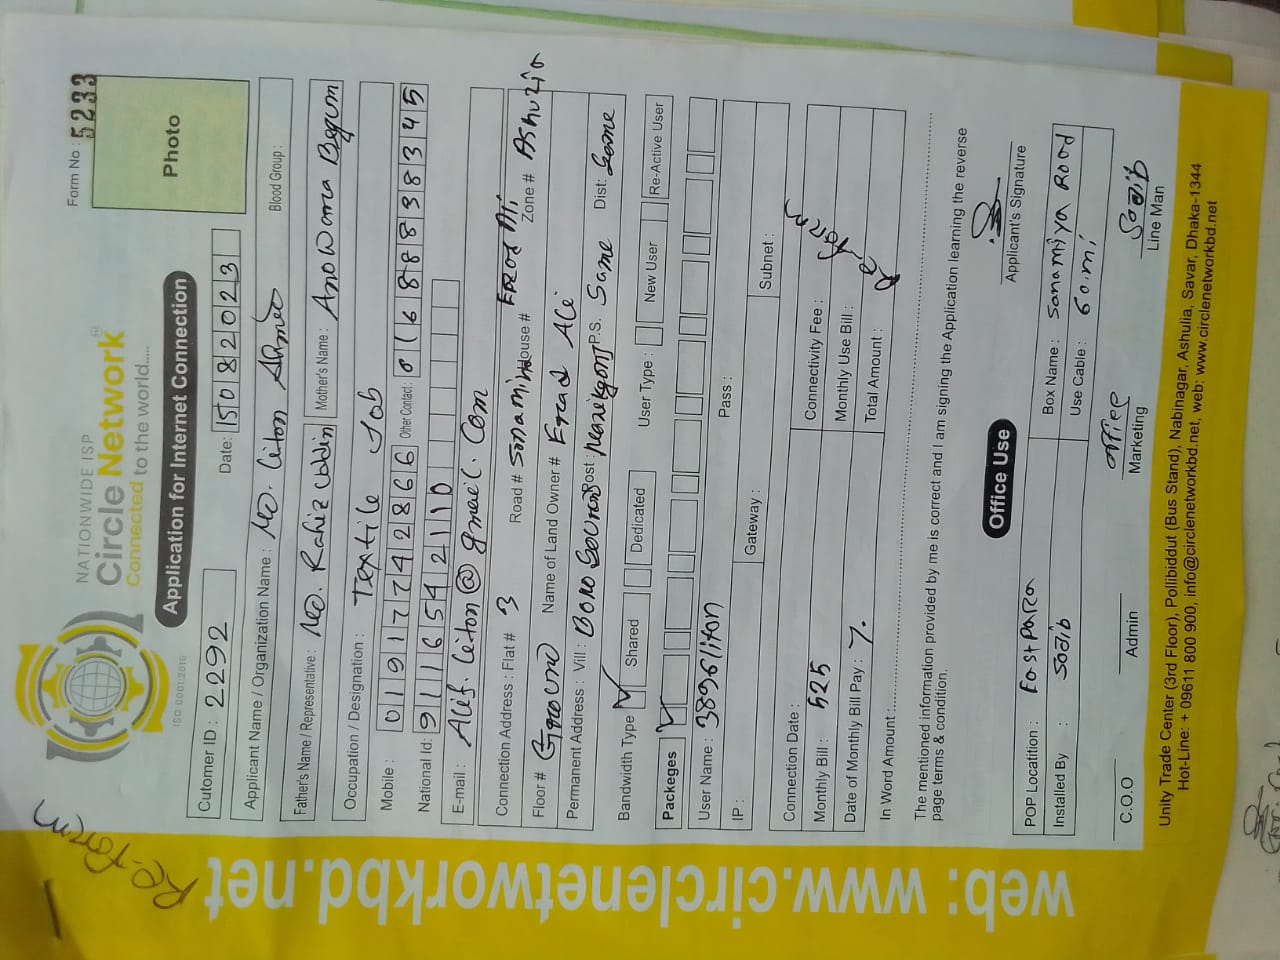 Re-form
NATIONWIDE ISP
Circle Network
Connected to the world.....
ISO 9001:2015
Form No : 5233
Application for Internet Connection
Photo
Cutomer ID : 2292
Date: 15082023
Applicant Name / Organization Name : MD. Liton Ahmed
Blood Group :
Father's Name / Representative : MD. Rafiz Uddin Mother's Name : Anowara Begum
Occupation / Designation : Textile Job
Mobile : 01917742866 Other Contact: 01688838345
National Id: 9116542110
E-mail : Alif.Liton@gmail.Com
Connection Address : Flat # 3 Road # Sonamia House # Erad Ali
Floor # Ground Name of Land Owner # Erad Ali Zone # Ashulia
Permanent Address : Vill : Post : P.S. Same Dist: Same
Bandwidth Type Shared Dedicated User Type : New User Re-Active User
Packeges
User Name : 3896liton Pass :
IP : Gateway : Subnet :
Connection Date : Connectivity Fee :
Monthly Bill : 525 Monthly Use Bill :
Date of Monthly Bill Pay : 7. Total Amount :
Re-form
In Word Amount
The mentioned information provided by me is correct and I am signing the Application learning the reverse
page terms & condition.
Applicant's Signature
Office Use
POP Locatition : East Para Box Name : Sonamiya Road
Installed By : Sajib Use Cable : 60.mi
office Sajib
C.O.O Admin Marketing Line Man
Unity Trade Center (3rd Floor), Pollibiddut (Bus Stand), Nabinagar, Ashulia, Savar, Dhaka-1344
Hot-Line: + 09611 800 900, info@circlenetworkbd.net, web: www.circlenetworkbd.net
web: www.circlenetworkbd.net